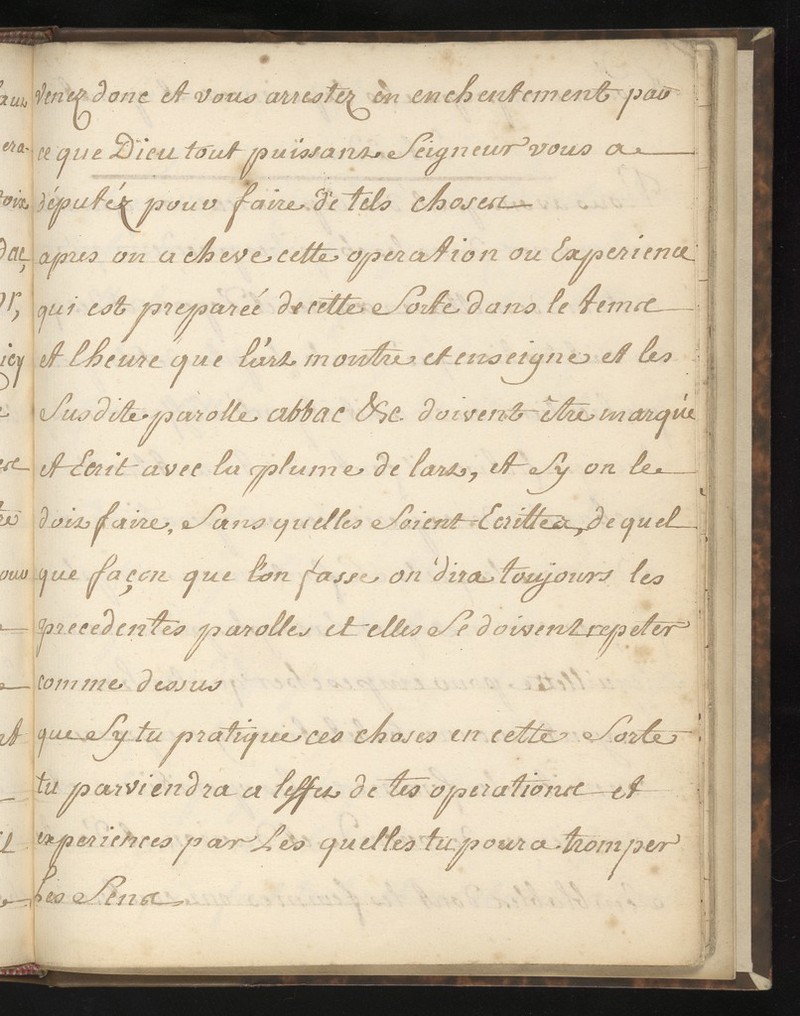 venez donc et vous arrestez en enchentement par
ce que Dieu tout puissant Seigneur vous a
députéz pour faire de tels choses
apres on acheve cette operation ou Experience
qui est preparéé de cette Sorte dans le tems
et lheure que l'art montre et enseigne et les
Susdite parolle abbac &c. doivent être marqué
et Ecrit avec la plume de lart, et Sy on le
doit faire, Sans quelles Soient Ecrittes, de quel
que façon que l'on fasse on dira toujours les
precedentes parolles et elles Se doivent repeter
comme dessus
que Sy tu pratique ces choses en cette Sorte
tu parviendra a leffet de tes operations et
experiences par Les quelles tu poura tromper
Les Sens